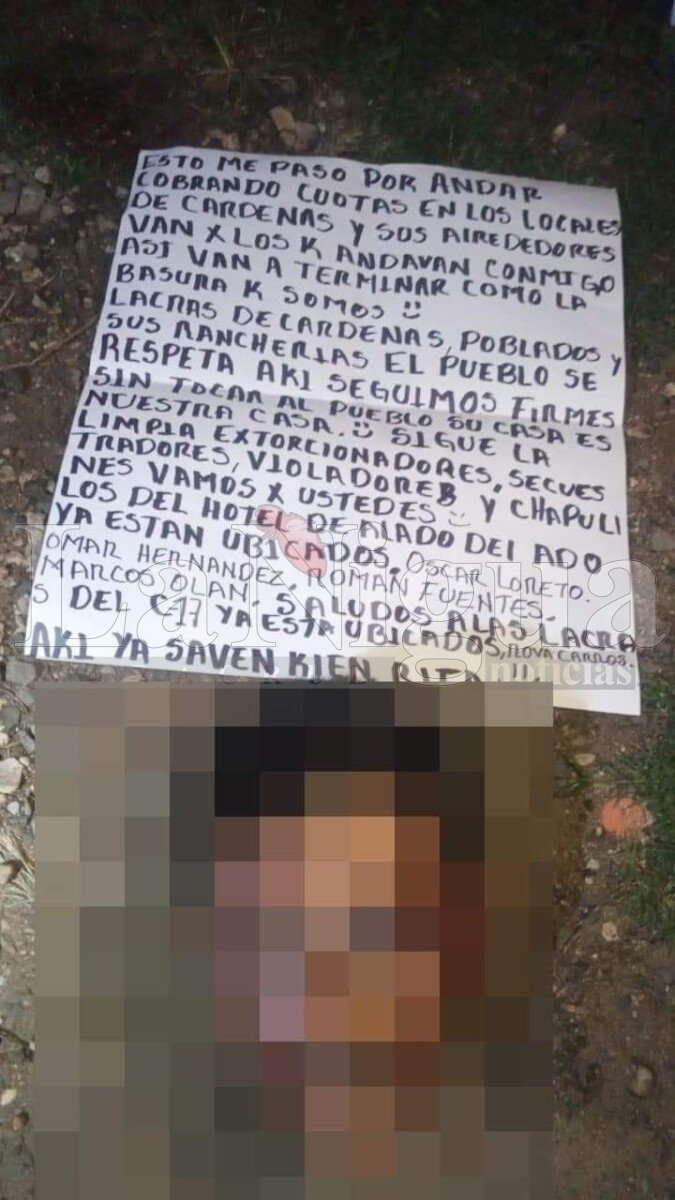 ESTO ME PASO POR ANDAR
COBRANDO CUOTAS EN LOS LOCALES
DE CARDENAS Y SUS AIREDEDORES
VAN X LOS K ANDAVAN CONMIGO
ASI VAN A TERMINAR COMO LA
BASURA K SOMOS
LACRAS DE CARDENAS, POBLADOS Y
SUS RANCHERIAS EL PUEBLO SE
RESPETA AKI SEGUIMOS FIRMES
SIN TOCAR AL PUEBLO SU CASA ES
NUESTRA CASA. SIGUE LA
LIMPIA EXTORCIONADORES, SECUES
TRADORES, VIOLADORES Y CHAPULI
NES VAMOS X USTEDES
LOS DEL HOTEL DE ALADO DEL ADO
YA ESTAN UBICADOS. OSCAR LORETO.
OMAR HERNANDEZ. ROMAN FUENTES.
MARCOS OLAN. SALUDOS A LAS LACRA
S DEL C-17 YA ESTA UBICADOS,
AKI YA SAVEN KIEN
LaNigua
noticias